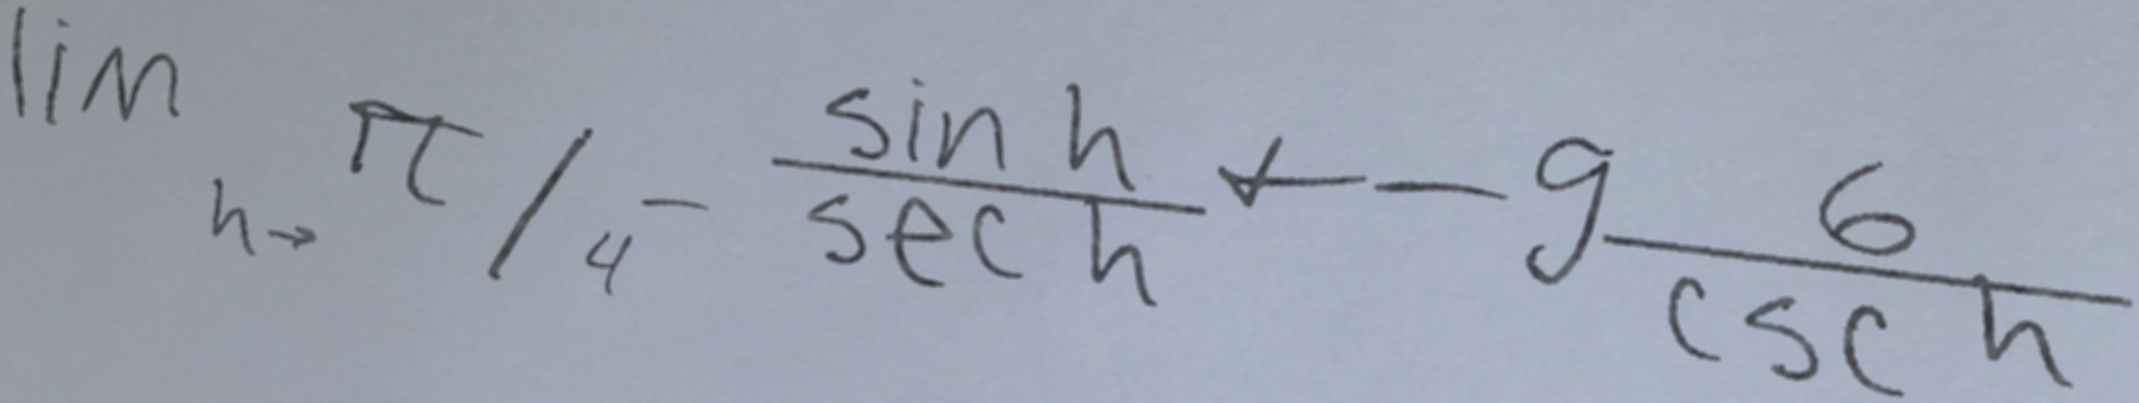 \lim_{h \to \pi/4^-} \frac{\sin h}{\sec h} + -9 \frac{6}{\csc h}